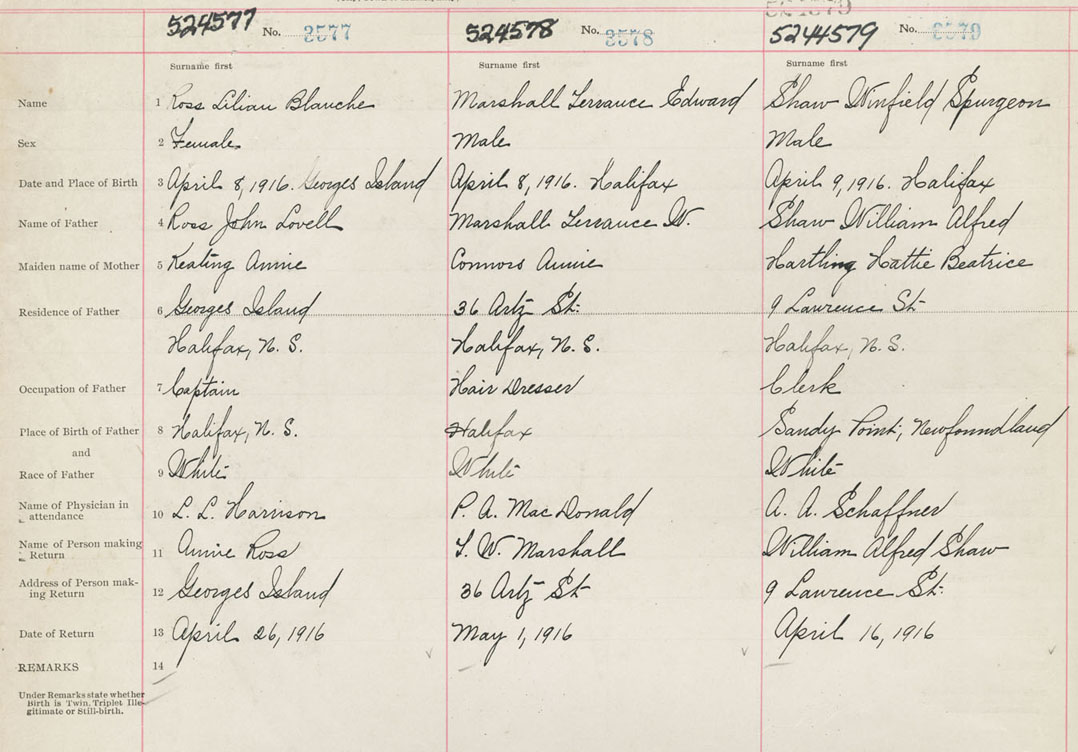 524577 No. 2577 524578 No. 2578 5244579 No. 2579
Surname first Surname first Surname first
Name 1 Ross Lilian Blanche Marshall Terrance Edward Shaw Winfield Spurgeon
Sex 2 Female Male Male
Date and Place of Birth 3 April 8, 1916. Georges Island April 8, 1916. Halifax April 9, 1916. Halifax
Name of Father 4 Ross John Lovell Marshall Terrance W. Shaw William Alfred
Maiden name of Mother 5 Keating Annie Connors Annie Hartling Hattie Beatrice
Residence of Father 6 Georges Island 36 Artz St. 9 Lawrence St
Halifax, N. S. Halifax, N. S. Halifax, N. S.
Occupation of Father 7 Captain Hair Dresser Clerk
Place of Birth of Father 8 Halifax, N. S. Halifax Sandy Point, Newfoundland
and
Race of Father 9 White White White
Name of Physician in attendance 10 L. L. Harrison P. A. MacDonald A. A. Schaffner
Name of Person making Return 11 Annie Ross T. W. Marshall William Alfred Shaw
Address of Person mak-
ing Return 12 Georges Island 36 Artz St 9 Lawrence St.
Date of Return 13 April 26, 1916 May 1, 1916 April 16, 1916
REMARKS 14
Under Remarks state whether
Birth is Twin, Triplet Ille-
gitimate or Still-birth.